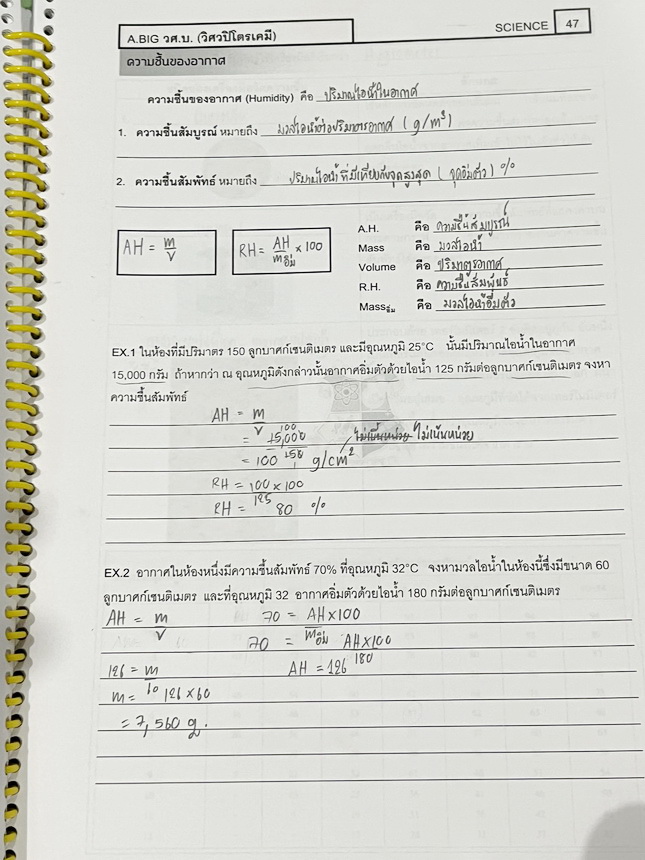 A.BIG วศ.บ. (วิศวปิโตรเคมี)
SCIENCE 47
ความชื้นของอากาศ
ความชื้นของอากาศ (Humidity) คือ ปริมาณไอน้ำในอากาศ
1. ความชื้นสัมบูรณ์ หมายถึง มวลไอน้ำต่อปริมาตรอากาศ (g/m³)
2. ความชื้นสัมพัทธ์ หมายถึง ปริมาณไอน้ำที่มีเทียบกับจุดสูงสุด (จุดอิ่มตัว) %
AH = m/v
RH = AH/mอิ่ม × 100
A.H. คือ ความชื้นสัมบูรณ์
Mass คือ มวลไอน้ำ
Volume คือ ปริมาตรอากาศ
R.H. คือ ความชื้นสัมพันธ์
Massอิ่ม คือ มวลไอน้ำอิ่มตัว
EX.1 ในห้องที่มีปริมาตร 150 ลูกบาศก์เซนติเมตร และมีอุณหภูมิ 25°C นั้นมีปริมาณไอน้ำในอากาศ
15,000 กรัม ถ้าหากว่า ณ อุณหภูมิดังกล่าวนั้นอากาศอิ่มตัวด้วยไอน้ำ 125 กรัมต่อลูกบาศก์เซนติเมตร จงหา
ความชื้นสัมพัทธ์
AH = m/v
= 15,000/150 100 1
= 100 g/cm² ไม่เน้นหน่วย ไม่เน้นหน่วย
RH = 100 × 100/125
RH = 80 %
EX.2 อากาศในห้องหนึ่งมีความชื้นสัมพัทธ์ 70% ที่อุณหภูมิ 32°C จงหามวลไอน้ำในห้องนี้ซึ่งมีขนาด 60
ลูกบาศก์เซนติเมตร และที่อุณหภูมิ 32 อากาศอิ่มตัวด้วยไอน้ำ 180 กรัมต่อลูกบาศก์เซนติเมตร
AH = m/v 70 = AH×100/mอิ่ม
70 = AH×100/180
126 = m/60 AH = 126
m = 126 × 60
= 7,560 g.